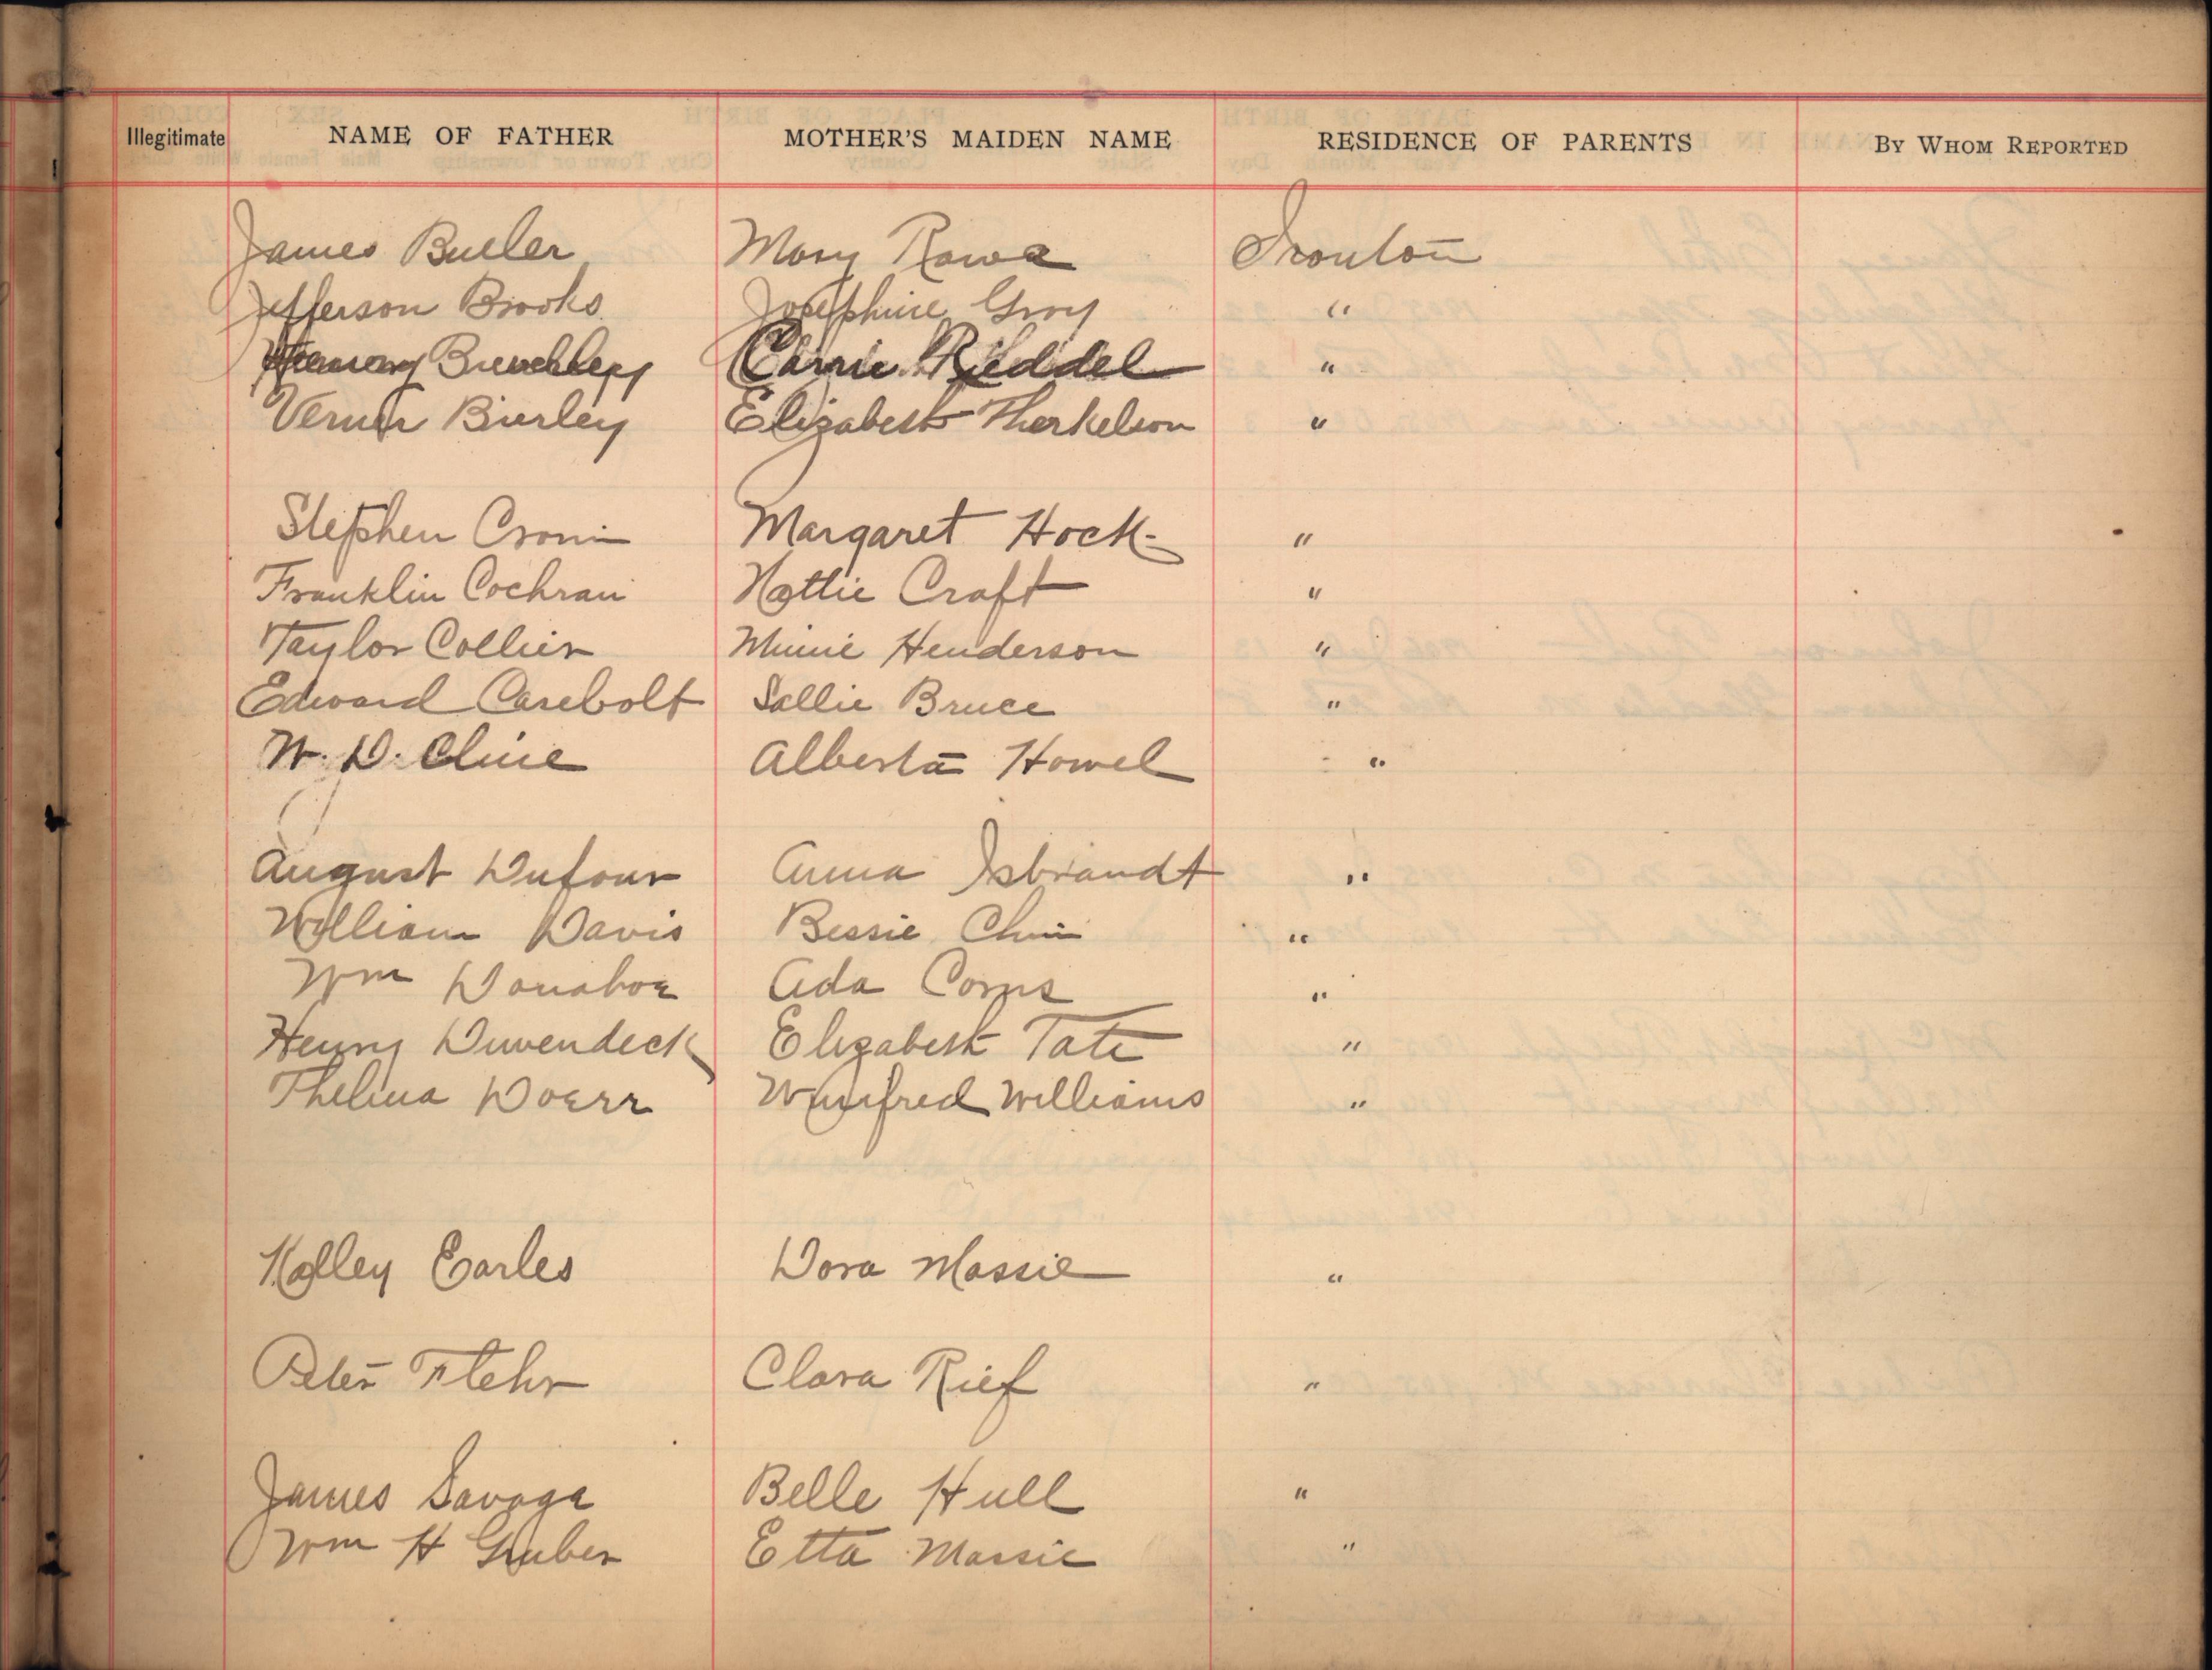 Illegitimate NAME OF FATHER MOTHER'S MAIDEN NAME RESIDENCE OF PARENTS BY WHOM REPORTED
James Butler Mary Rowe Ironton
Jefferson Brooks Josephine Gray "
Carrie Riddel "
Verner Bierley Elizabeth Therkelson "
Stephen Cronin Margaret Hock "
Franklin Cochran Hattie Craft "
Taylor Collier Minnie Henderson "
Edward Casebolt Sallie Bruce "
W. D. Cline Alberta Howel "
August Dufour Anna Isbrandt "
William Davis Bessie "
Wm Donahoe Ada Corns "
Henry Duvendeck Elizabeth Tate "
Thelma Doerr Winifred Williams "
Kelley Earles Dora Massie "
Peter Flehr Clara Rief "
James Savage Belle Hull "
Wm H Gruber Etta Massie "